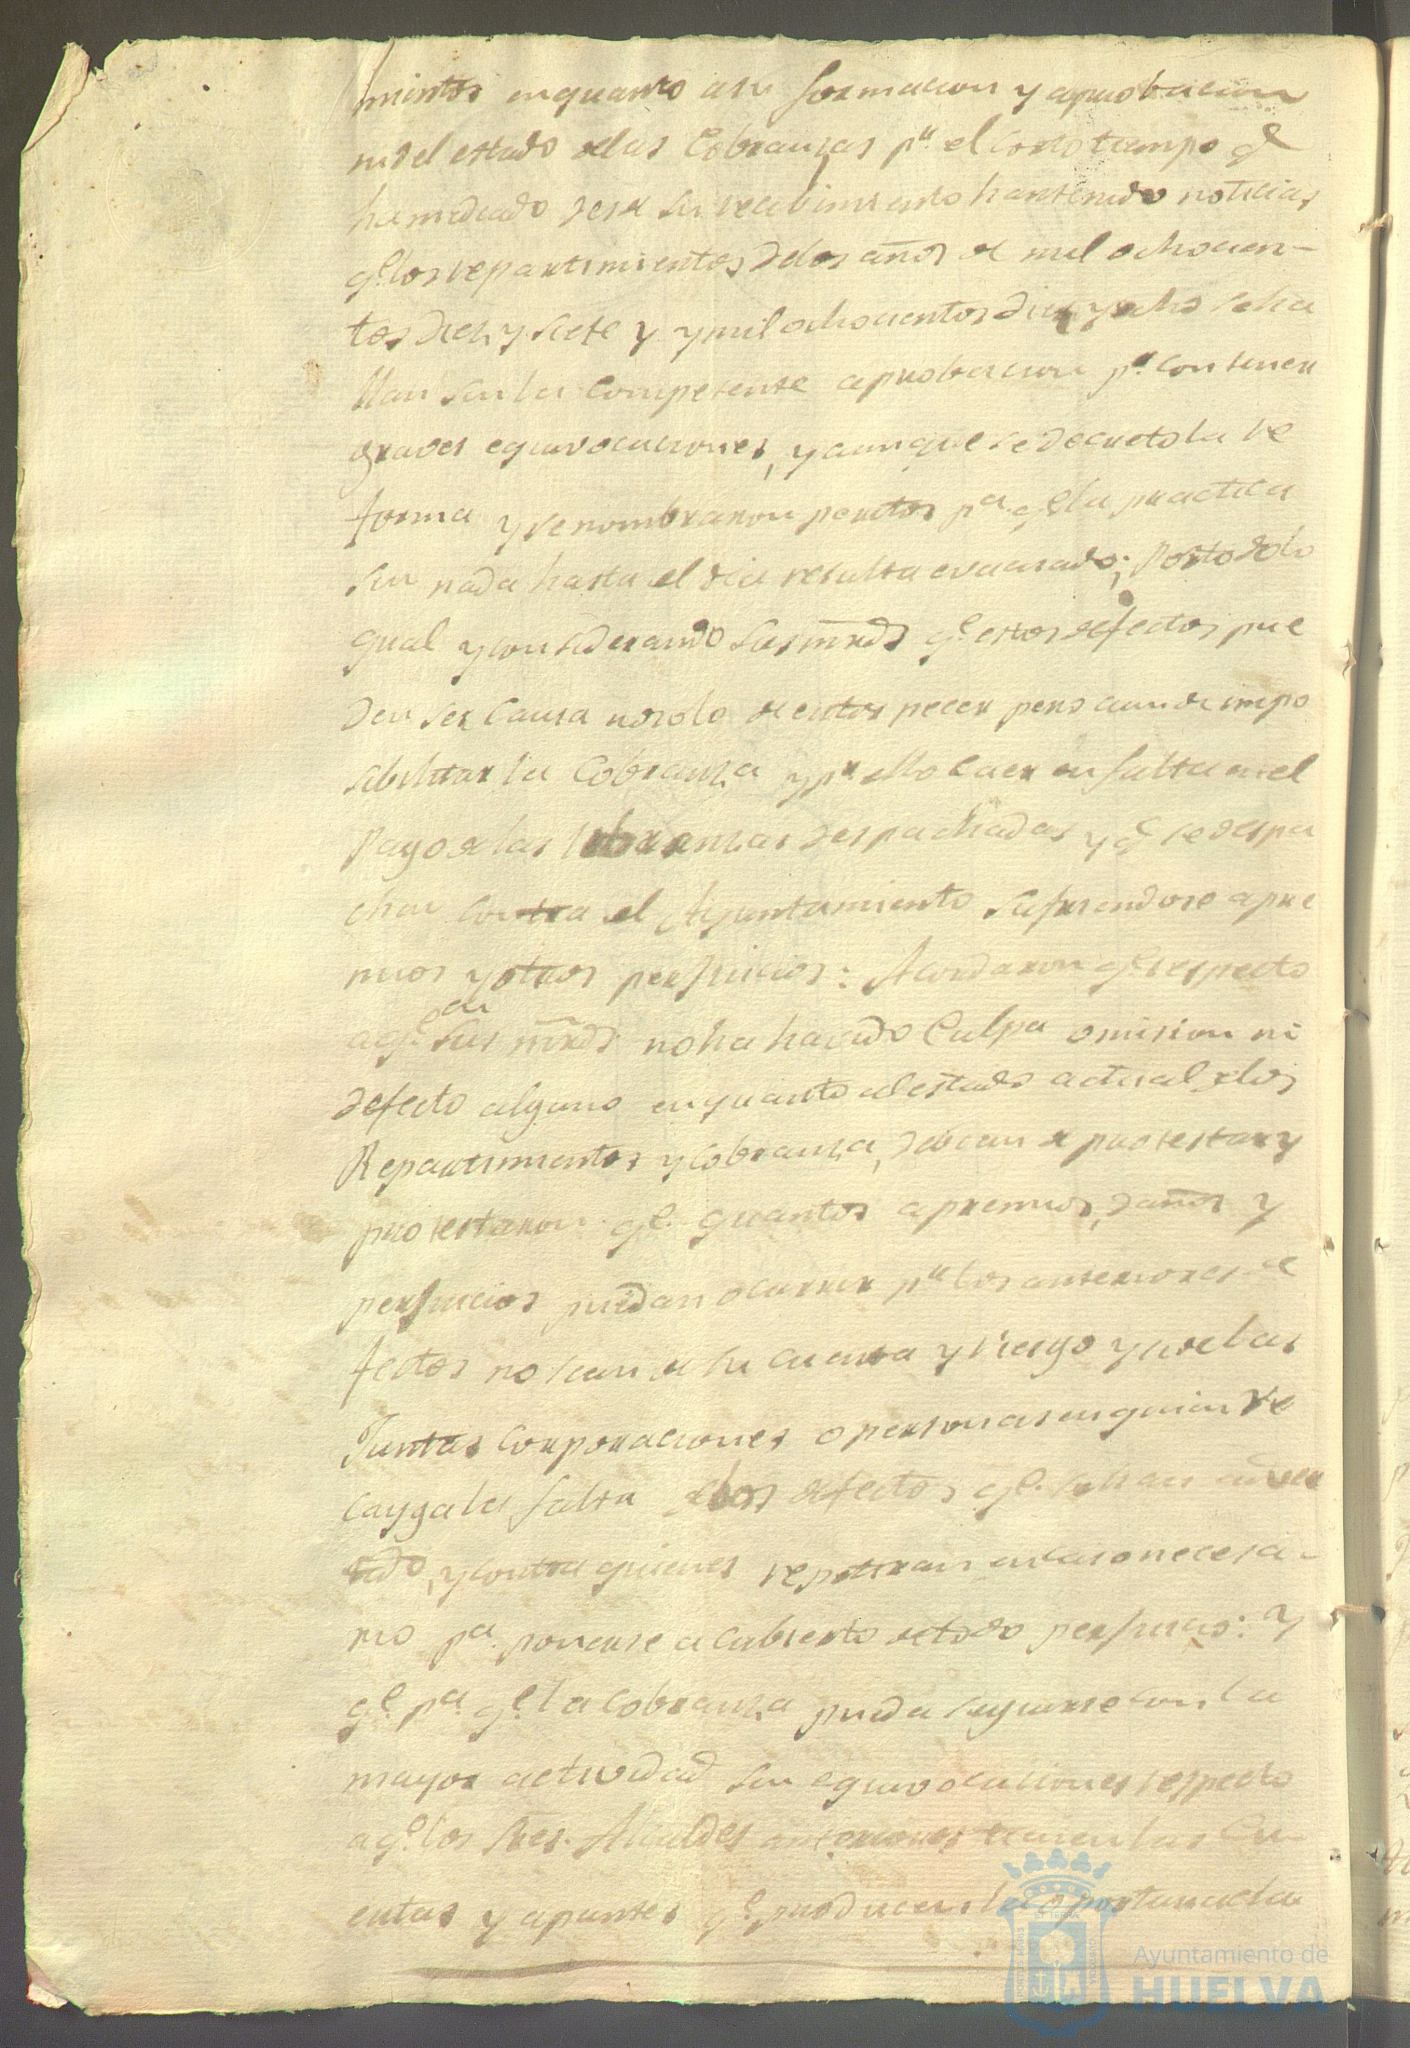 mientos en quanto a su formacion y aprobacion
ni del estado de las Cobranzas pr. el corto tiempo q
ha mediado desde su recibimiento han tenido noticias
qe. los repartimientos de los años de mil ochocien-
tos diez y siete y y mil ochocientos diez y ocho se ha
llan sin la competente aprobacion pr. contener
graves equivocaciones, y aunque se decreto la re
forma y se nombraron peritos pa. qe. la practica
sen nada hasta el dia resulta evacuado; Por todo lo
qual y considerando sus mrds qe. estos defectos pue
den ser causa no solo de entorpecer pero aun de impo
sibilitar la Cobranza y pr ello caer en falta en el
Pago de las libranzas despachadas y qe se despa
chen contra el Ayuntamiento sufriendose apre
mios y otros perjuicios: Acordaron qe. respecto
a qe. en sus mrds no ha havido Culpa omision ni
defecto alguno en quanto al estado actual de los
Repartimientos y Cobranza, debian de protestar y
protestaron qe. quantos apremios, daños y
perjuicios puedan ocurrir pr los anteriores de
fectos no sean de su cuenta y riesgo y si de las
Juntas corporaciones o personas en quien re
cayga la falta de los defectos qe. se han adver
tido, y contra quienes repetiran en caso necesa-
rio pa. ponerse a cubierto de todo perjuicio: Y
qe. pa. qe. la cobranza pueda seguirse con la
mayor actividad sin equivocaciones respecto
a qe. los Sres. Alcaldes anteriores tienen las Cu
entas y apuntes qe. producen la oportuna cla
Ayuntamiento de
HUELVA